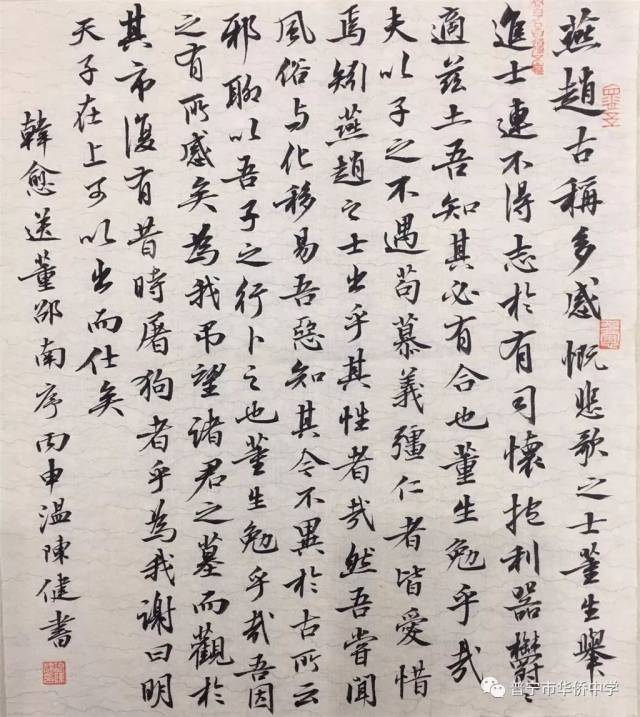 燕趙古稱多感慨悲歌之士董生舉
進士連不得志於有司懷抱利器鬱〻
適茲土吾知其必有合也董生勉乎哉
夫以子之不遇苟慕義彊仁者皆愛惜
焉矧燕趙之士出乎其性者哉然吾嘗聞
風俗与化移易吾惡知其今不異於古所云
邪聊以吾子之行卜之也董生勉乎哉吾因
之有所感矣為我吊望諸君之墓而觀於
其市復有昔時屠狗者乎為我謝曰明
天子在上可以出而仕矣
韓愈送董邵南序丙申溫陳健書
普宁市华侨中学